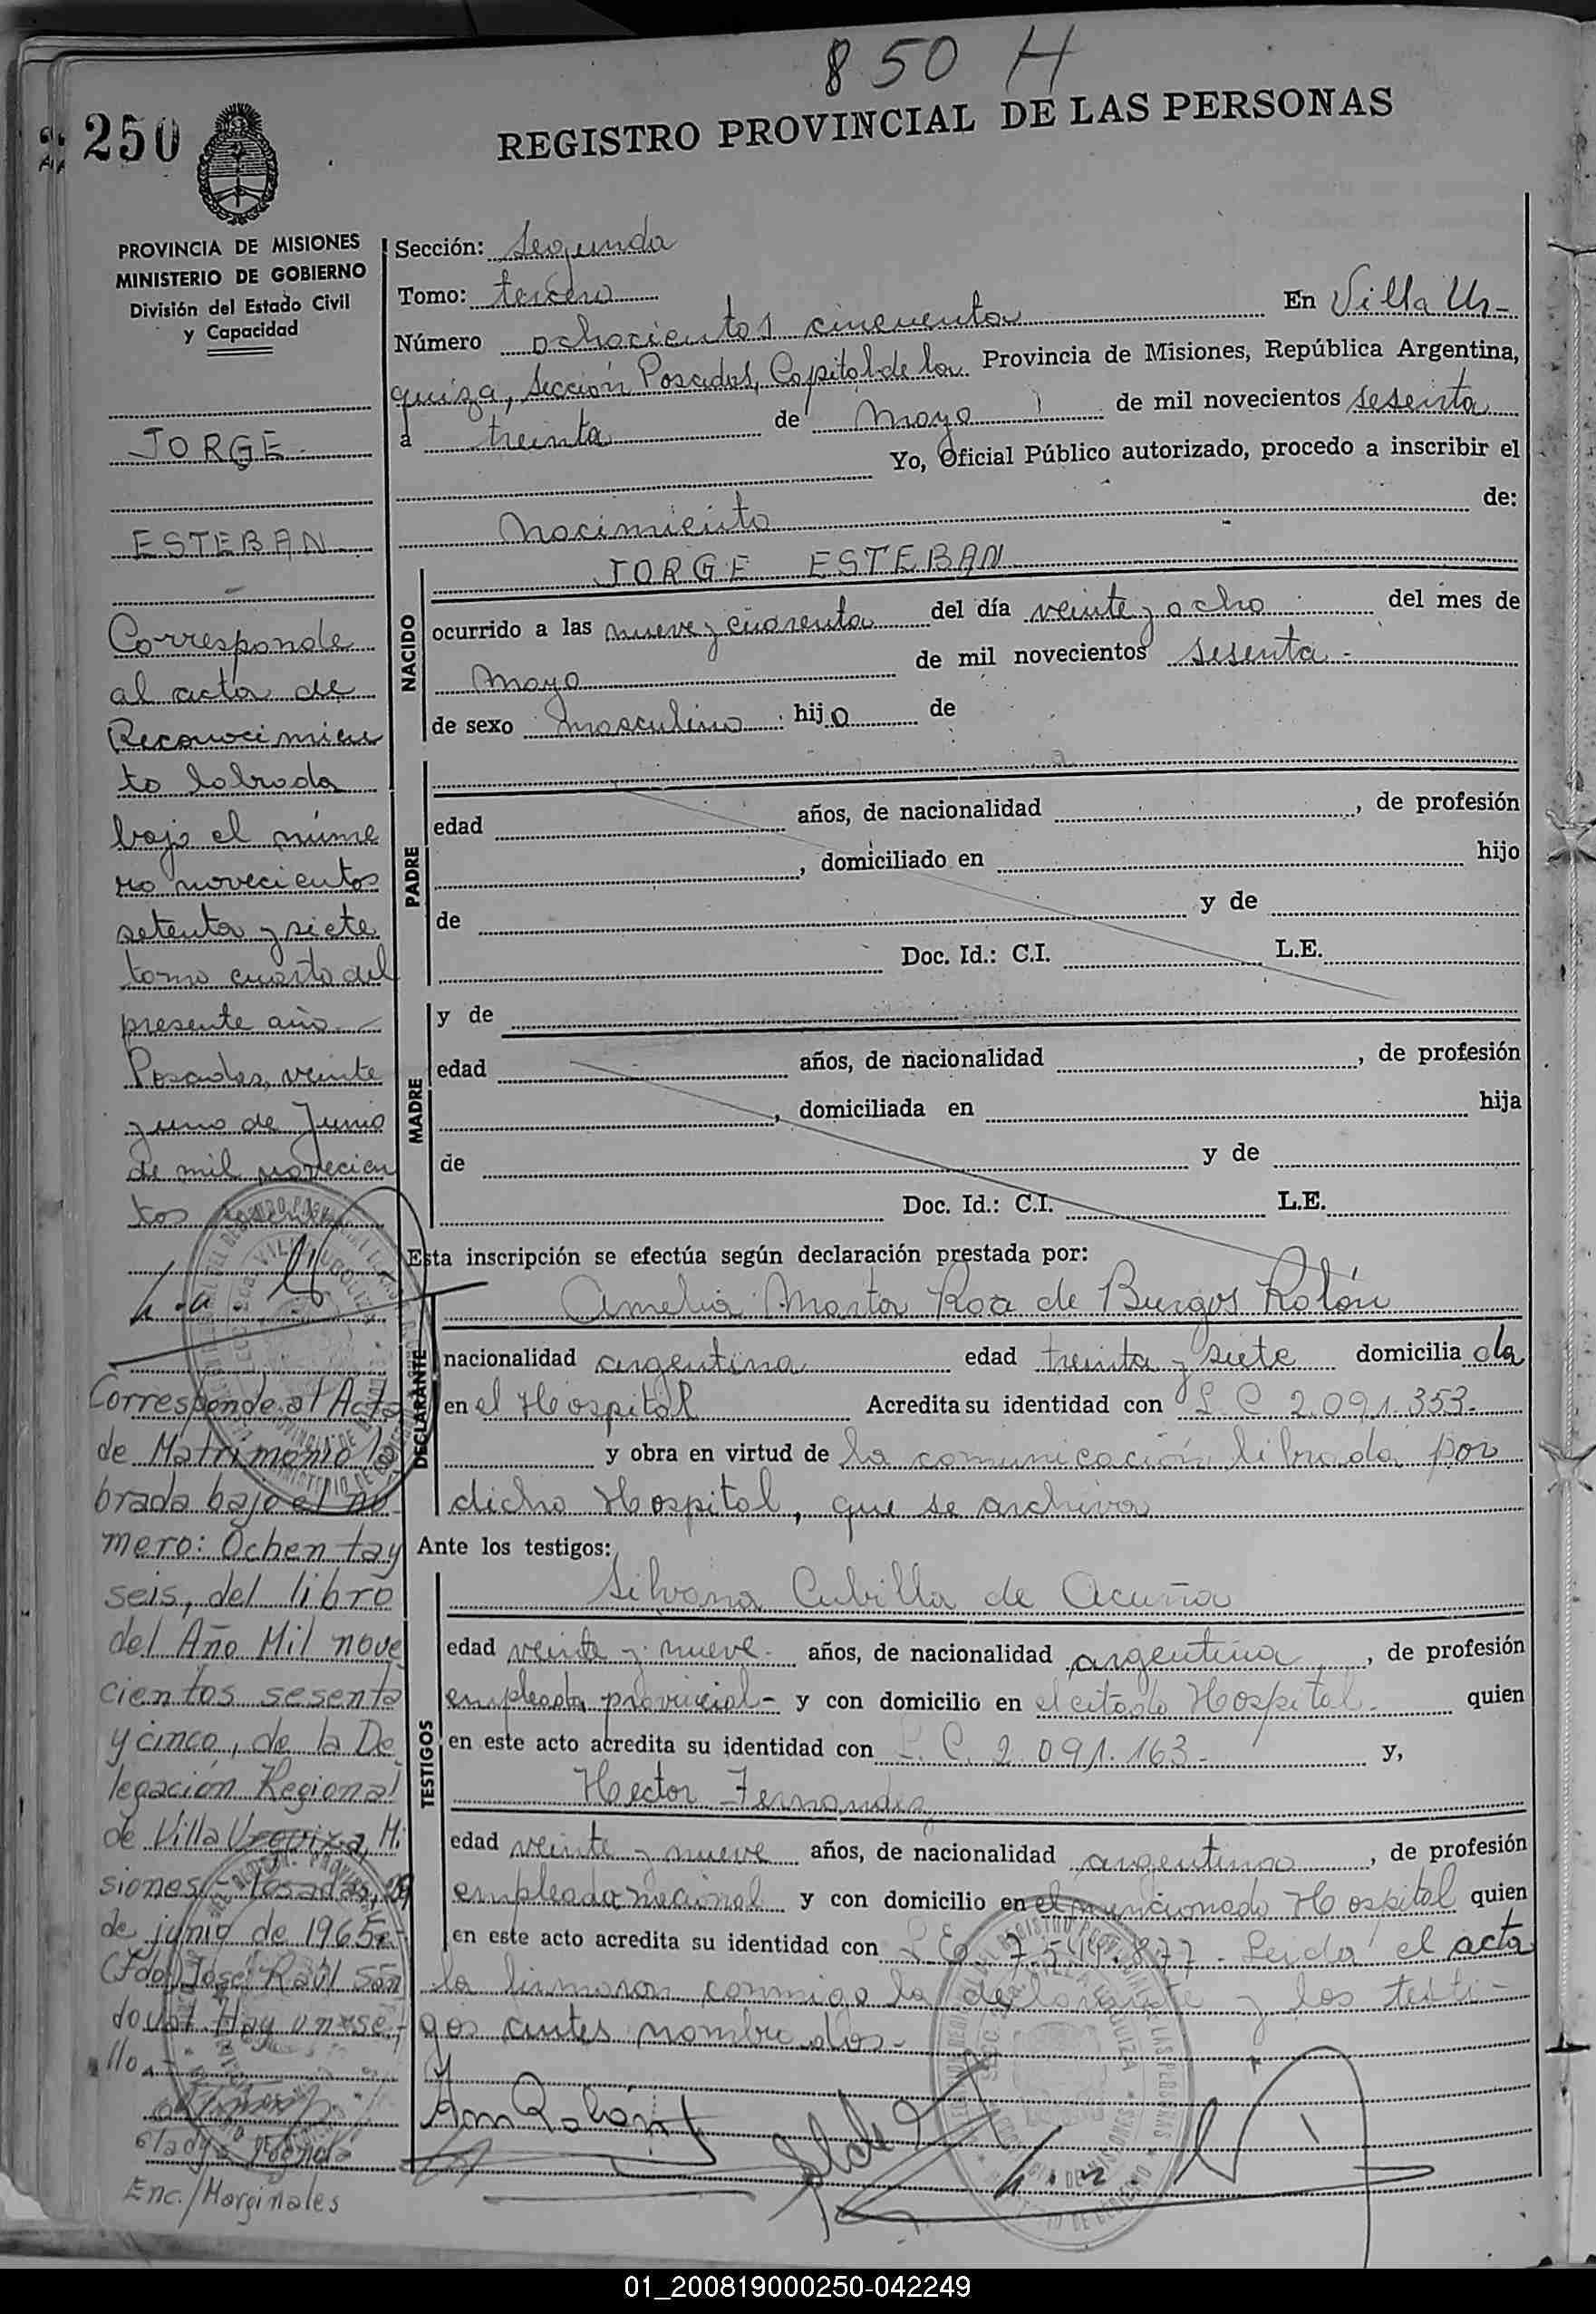 850 H
250
REGISTRO PROVINCIAL DE LAS PERSONAS
PROVINCIA DE MISIONES
MINISTERIO DE GOBIERNO
División del Estado Civil
y Capacidad
JORGE
ESTEBAN
Corresponde
al acta de
Reconocimien
to labrada
bajo el núme
ro novecientos
setenta y siete
tomo cuarto del
presente año
Posadas, veinte
y uno de Junio
de mil novecien
tos sesenta
Corresponde al Acta
de Matrimonio la
brada bajo el nú
mero: Ochenta y
seis, del libro
del Año Mil nove
cientos sesenta
y cinco, de la De
legación Regional
de Villa Urquiza, Mi
siones - Posadas, 29
de junio de 1965
(Fdo) José Raúl San
doval. Hay un se-
llo.
Enc./Marginales
Sección: Segunda
Tomo: tercero
Número ochocientos cincuenta En Villa Ur-
quiza, Sección Posadas, Capital de la Provincia de Misiones, República Argentina,
a treinta de Mayo de mil novecientos sesenta
Yo, Oficial Público autorizado, procedo a inscribir el
Nacimiento de:
NACIDO
JORGE ESTEBAN
ocurrido a las nueve y cuarenta del día veinte y ocho del mes de
Mayo de mil novecientos sesenta -
de sexo masculino hijo de
PADRE
edad años, de nacionalidad , de profesión
, domiciliado en hijo
de y de
Doc. Id.: C.I. L.E.
MADRE
y de
edad años, de nacionalidad , de profesión
, domiciliada en hija
de y de
Doc. Id.: C.I. L.E.
Esta inscripción se efectúa según declaración prestada por:
DECLARANTE
Amelia Marta Roa de Burgos Rolón
nacionalidad argentina edad treinta y siete domiciliada
en el Hospital Acredita su identidad con L C 2.091.353-
y obra en virtud de la comunicación librada por
dicho Hospital, que se archiva
Ante los testigos:
TESTIGOS
Silvana Cubilla de Acuña
edad veinte y nueve - años, de nacionalidad argentina , de profesión
empleada provincial - y con domicilio en el citado Hospital - quien
en este acto acredita su identidad con L. C. 2.091.163- y,
Hector Fernandez
edad veinte y nueve años, de nacionalidad argentino , de profesión
empleado nacional y con domicilio en el mencionado Hospital quien
en este acto acredita su identidad con 877 - Leida el acta
la firmaron conmigo la declarante y los testi-
gos antes nombrados -
01_200819000250-042249